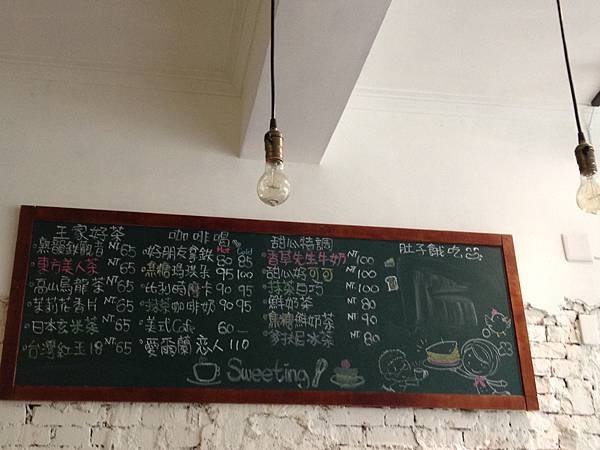 王家好茶
無毒鐵觀音 NT65
東方美人茶 NT65
高山烏龍茶 NT65
茉莉花香片 NT65
日本玄米茶 NT65
台灣紅玉18 NT65
咖啡喝
Hot Cold
好朋友拿鐵 80 85
焦糖瑪琪朵 95 100
比利時摩卡 90 95
抹茶咖啡奶 90 95
美式Cafe 60
愛爾蘭戀人 110
甜心特調
香草先生牛奶 NT100
甜心奶可可 NT100
抹茶巨巧 NT100
鮮奶茶 NT80
焦糖鮮奶茶 NT90
麥拉尼冰茶 NT80
肚子餓吃
Sweeting